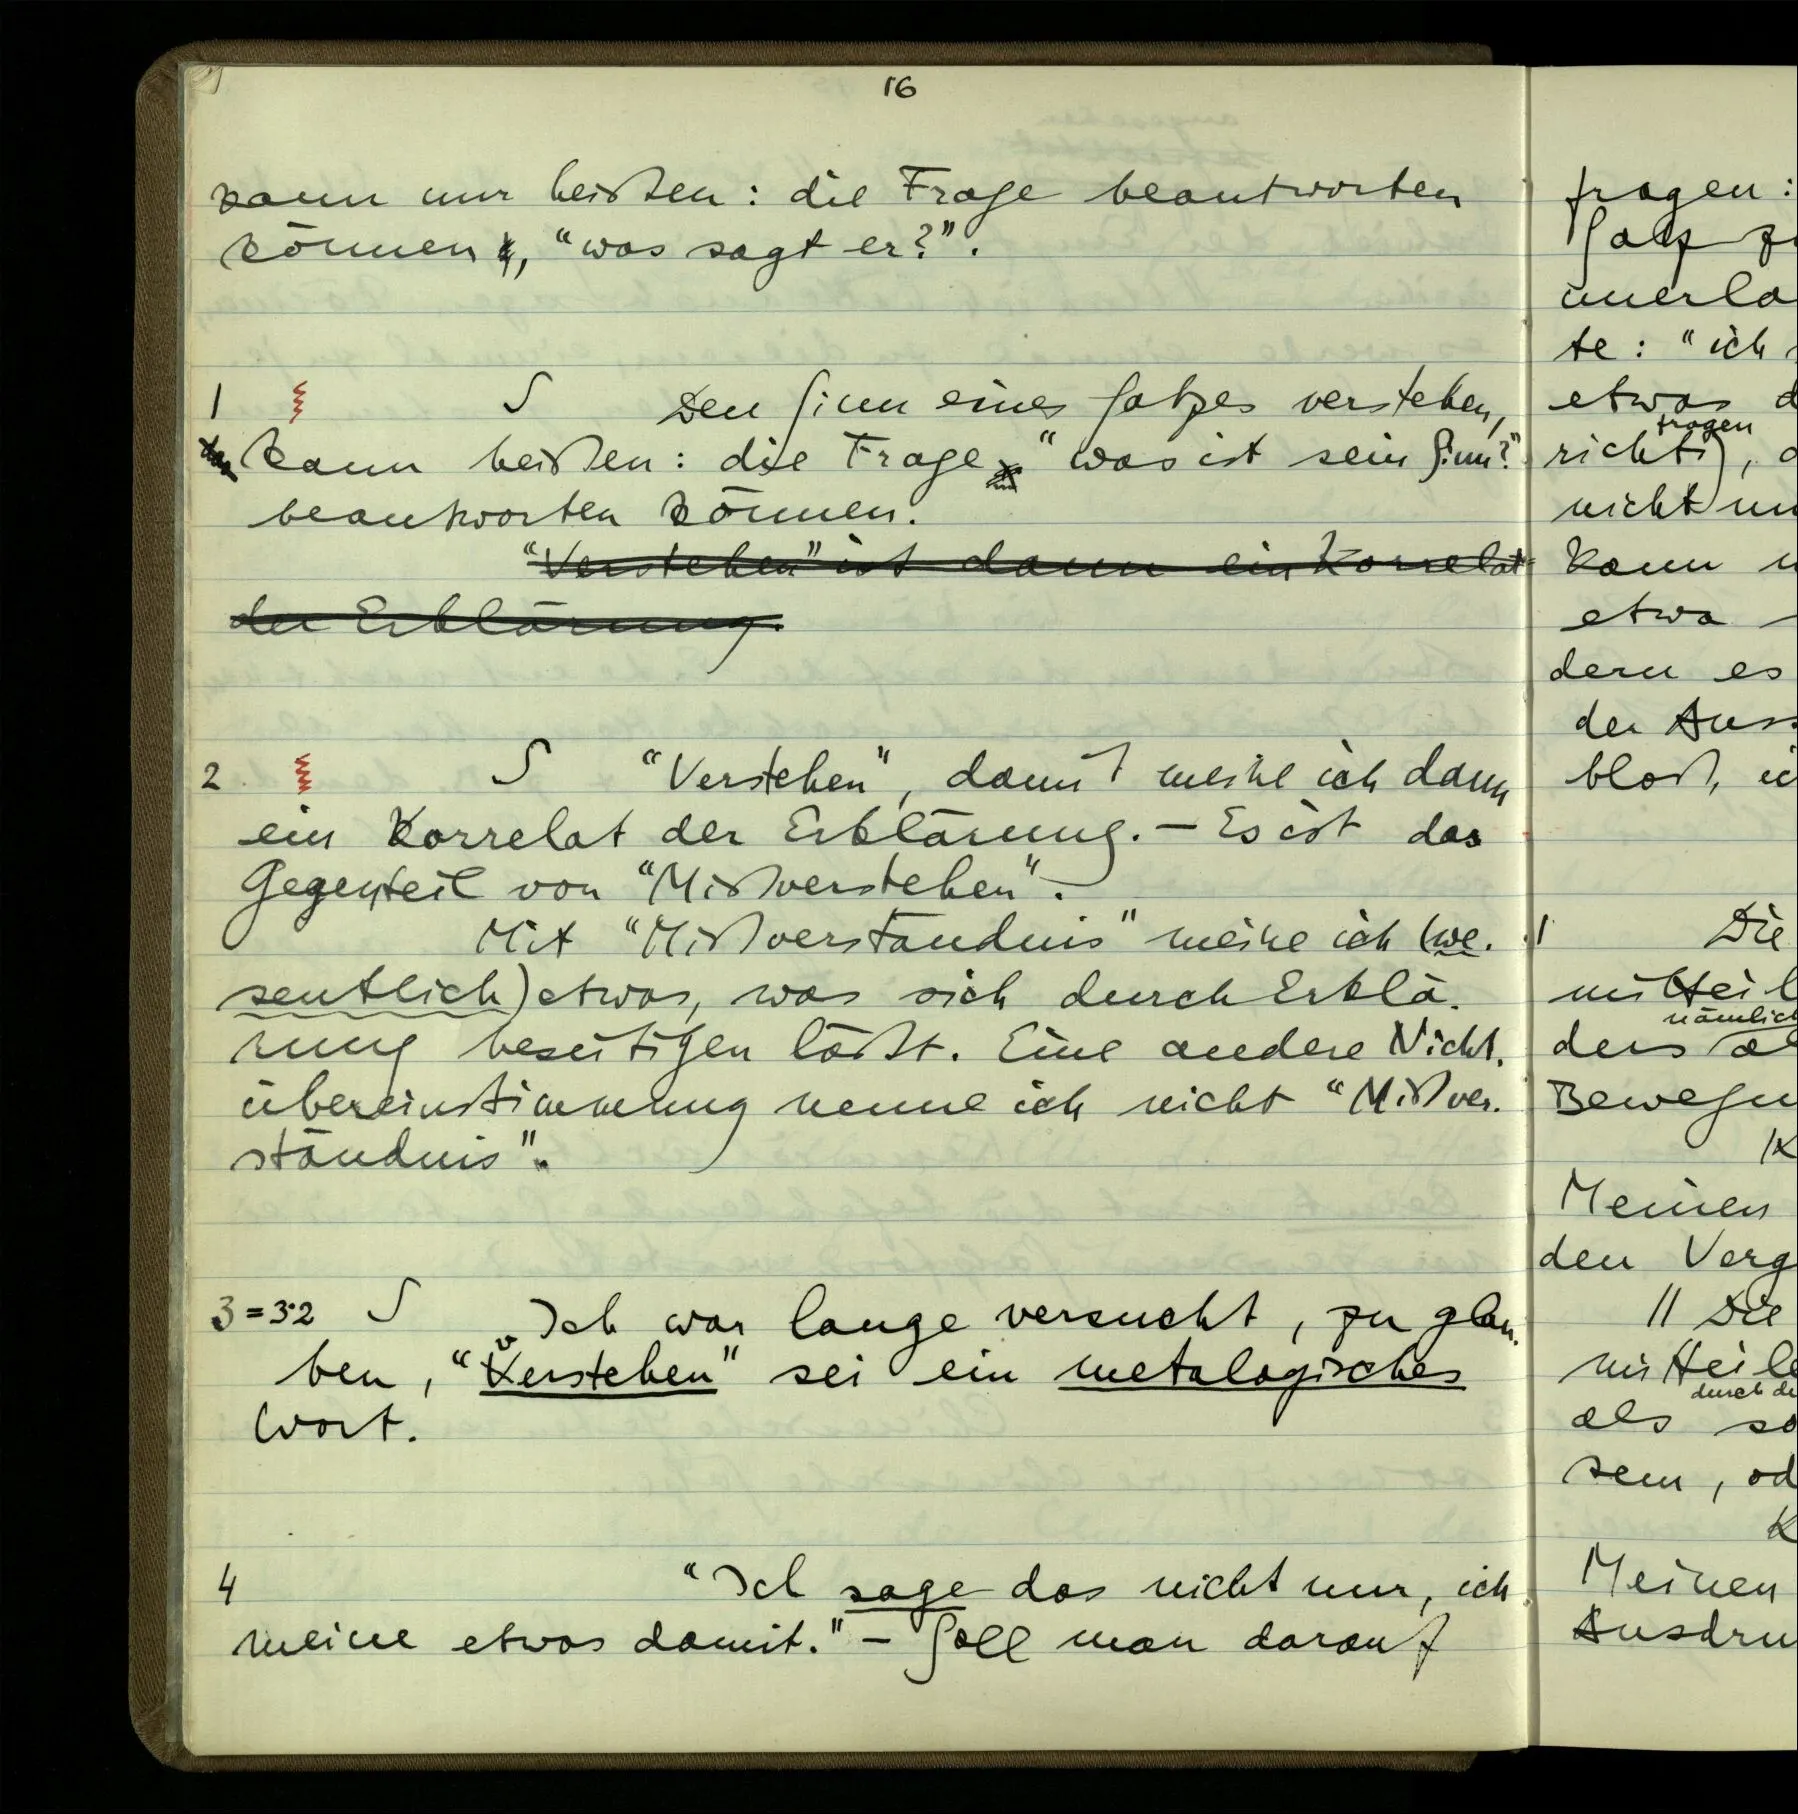 16
kann nur heißen: die Frage beantworten
können, “was sagt er?”.
1 ∫ Den Sinn eines Satzes verstehen,
kann heißen: die Frage “was ist sein Sinn?”
beantworten können.
“Verstehen” ist dann ein Korrelat
der Erklärung.
2 ∫ “Verstehen”, damit meine ich dann
ein Korrelat der Erklärung. – Es ist das
Gegenteil von “Mißverstehen”.
Mit “Mißverständnis” meine ich (we-
sentlich) etwas, was sich durch Erklä-
rung beseitigen läßt. Eine andere Nicht-
übereinstimmung nenne ich nicht “Mißver-
ständnis”.
3 = 3·2 ∫ Ich war lange versucht, zu glau-
ben, “verstehen” sei ein metalogisches
Wort.
4 “Ich sage das nicht nur, ich
meine etwas damit.” – Soll man darauf
fragen:
te: “ich
etwas
fragen
richtig),
nicht
kann
etwa
dern es
der
bloß,
1 Die
nämlich
ders
Meinen
den
// Die
durch
als
sem,
Meinen